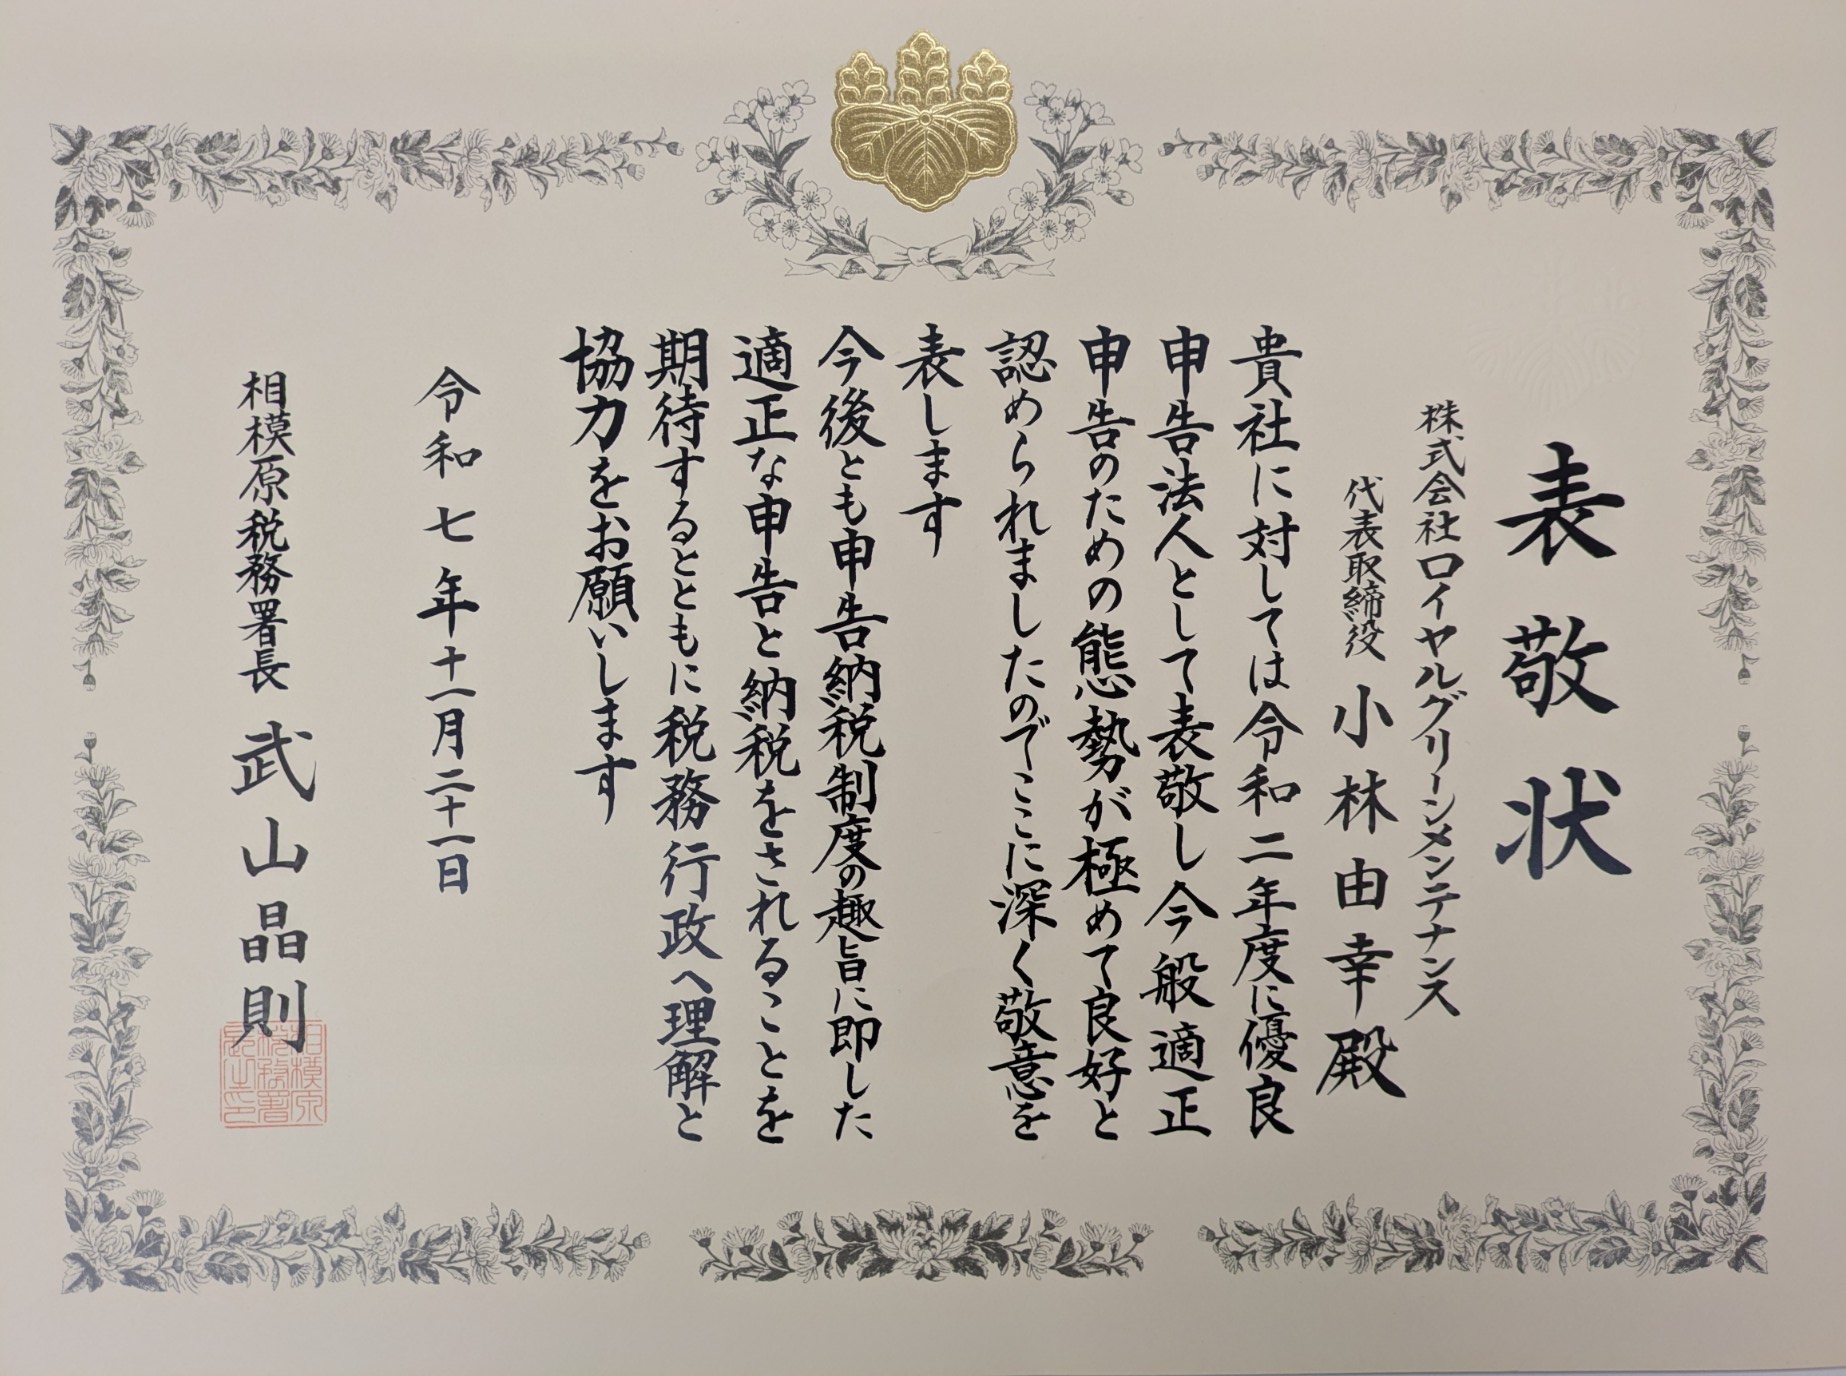 表敬状
株式会社ロイヤルグリーンメンテナンス
代表取締役 小林由幸殿
貴社に対しては令和二年度に優良
申告法人として表敬し今般適正
申告のための態勢が極めて良好と
認められましたのでここに深く敬意を
表します
今後とも申告納税制度の趣旨に即した
適正な申告と納税をされることを
期待するとともに税務行政へ理解と
協力をお願いします
令和七年十一月二十一日
相模原税務署長 武山晶則
相模原
税務署
長之印